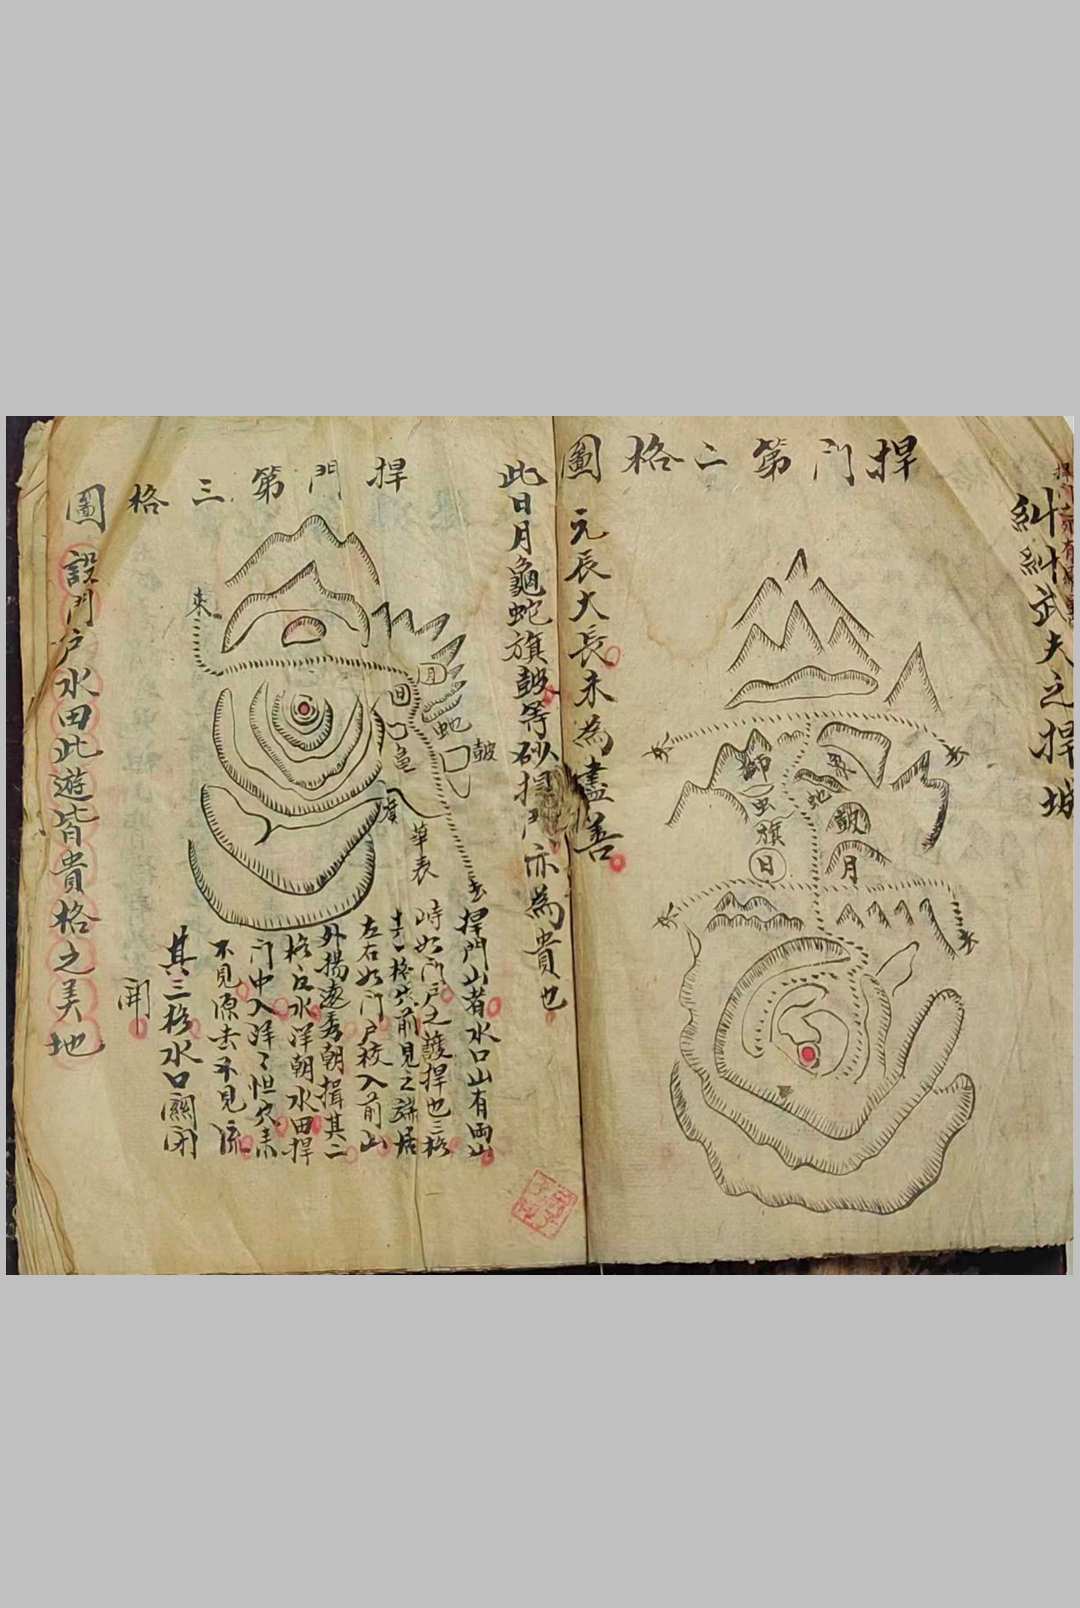 糾糾武夫之捍城
捍門第二格圖
來
去
獅
象
虫
蛇
旗
鼓
日
月
來
去
元辰大長未為盡善
此日月龜蛇旗鼓等砂捍門亦為貴也
捍門第三格圖
來
月
日
蛇
龜
鼓
旗
華表
去
捍門山者水口山有両山
峙如門戶之護捍也三格
其一格穴前見之端居
左右如門戶砂入前山
外揚遠秀朝揖其二
格后水洋朝水田捍
門中入洋〻怛穴素
不見源去不見流
其三格水口關闭
開
設門戶水田此遊皆貴格之美地